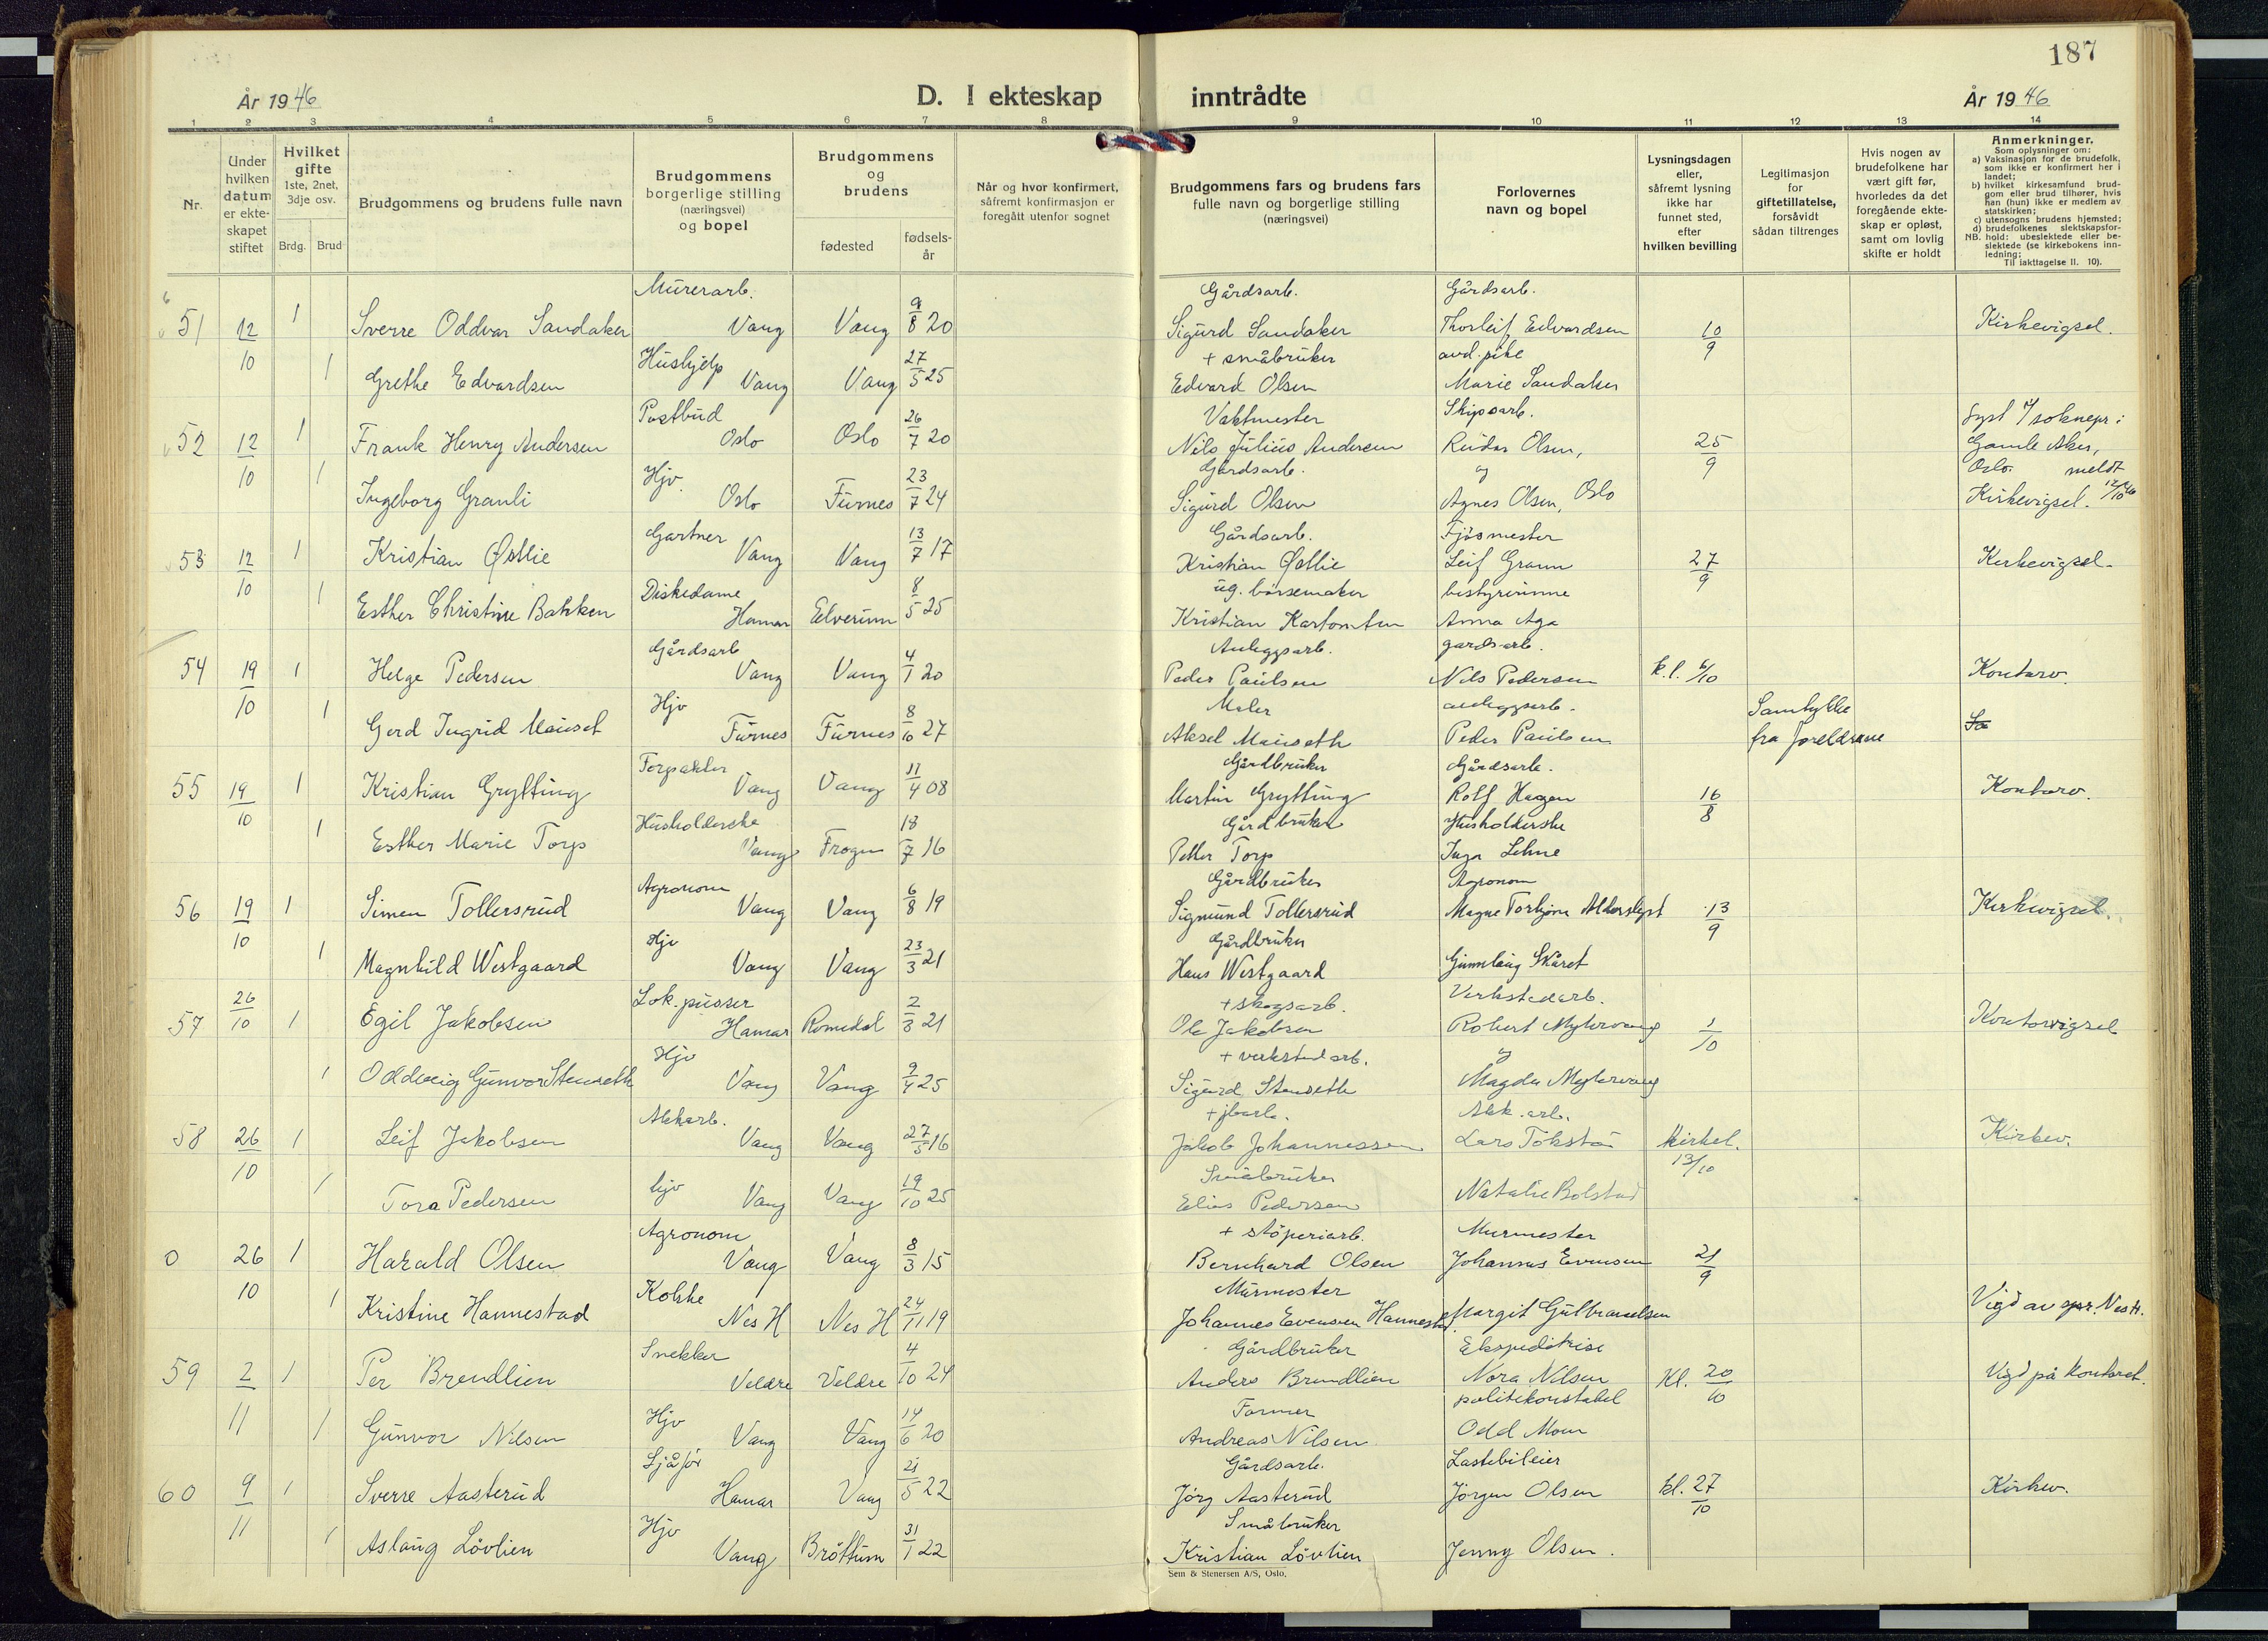 187
År 1946
D. I ekteskap inntrådte
År 1946
1 2 3 4 5 6 7 8 9 10 11 12 13 14
Nr.
Under hvilken datum er ekteskapet stiftet
Hvilket gifte 1ste, 2net, 3dje osv.
Brdg. Brud
Brudgommens og brudens fulle navn
Brudgommens borgerlige stilling (næringsvei) og bopel
Brudgommens og brudens
fødested
fødsels-år
Når og hvor konfirmert, såfremt konfirmasjon er foregått utenfor sognet
Brudgommens fars og brudens fars fulle navn og borgerlige stilling (næringsvei)
Forlovernes navn og bopel
Lysningsdagen eller, såfremt lysning ikke har funnet sted, efter hvilken bevilling
Legitimasjon for giftetillatelse, forsåvidt sådan tiltrenges
Hvis nogen av brudefolkene har vært gift før, hvorledes da det foregående ekteskap er opløst, samt om lovlig skifte er holdt
Anmerkninger.
Som oplysninger om:
a) Vaksinasjon for de brudefolk, som ikke er konfirmert her i landet;
b) hvilket kirkesamfund brudgom eller brud tilhører, hvis han (hun) ikke er medlem av statskirken;
c) utensogns brudens hjemsted;
d) brudefolkenes slektskapsforhold: ubeslektede eller beslektede (se kirkebokens innledning;
NB. Til iakttagelse II. 10).
Murerarb. Gårdsarb. Gårdsarb.
51 12/10 1 Sverre Oddvar Sandaker Vang Vang 9/8 20 Sigurd Sandaker Thorleif Edvardsen 10/9 Kirkevigsel.
Hushjelp + småbruker avd. pike
1 Grethe Edvardsen Vang Vang 27/5 25 Edvard Olsen Marie Sandaker
Postbud Vaktmester Skipsarb.
52 12/10 1 Frank Henry Andersen Oslo Oslo 26/7 20 Nils Julius Andersen Reidar Olsen, 25/9 Lyst 7 soknepr. i Gamle Aker, Oslo. meldt 12/10 46
Hjv. Gårdsarb. og
1 Ingeborg Granli Oslo Furnes 23/7 24 Sigurd Olsen Agnes Olsen, Oslo Kirkevigsel.
Gartner Gårdsarb. Fjøsmester
53 12/10 1 Kristian Østlie Vang Vang 13/7 17 Kristian Østlie Leif Gran 27/9 Kirkevigsel.
Diskedame ug. børsemaker bestyrerinne
1 Esther Christine Bakken Hamar Elverum 8/5 25 Kristian Anna Aga
Gårdsarb Anleggsarb. gardsarb.
54 19/10 1 Helge Pedersen Vang Vang 4/1 20 Peder Paulsen Nils Pedersen k.l. 6/10 Kontorv.
Hjv Maler anleggsarb. Samtykke
1 Gerd Ingrid Mauset Furnes Furnes 8/10 27 Aksel Mauseth Peder Paulsen fra foreldrene
Forpakter Gårdbruker Gårdsarb.
55 19/10 1 Kristian Grytting Vang Vang 11/4 08 Martin Grytting Rolf Hagen 16/8 Kontorv.
Husholderske Gårdbruker Husholderske
1 Esther Marie Torp Vang Frogn 18/7 16 Petter Torp Inga Lehne
Agronom Gårdbruker Agronom
56 19/10 1 Simen Tollersrud Vang Vang 6/8 19 Sigmund Tollersrud Magne Torbjørn Alderslyst 13/9 Kirkevigsel.
Hjv Gårdbruker
1 Magnhild Westgaard Vang Vang 23/3 21 Hans Westgaard Gunnlaug Skåret
Lok.pusser + skogsarb. Verkstedarb.
57 26/10 1 Egil Jakobsen Hamar Romedal 2/3 21 Ole Jakobsen Robert Myhrvang 1/10 Kontorvigsel
Hjv + verkstedarb. og
1 Oddveig Gunvor Stenseth Vang Vang 9/4 25 Sigurd Stenseth Magda Myhrvang
Akkarb. + jbarb. Akk.arb.
58 26/10 1 Leif Jakobsen Vang Vang 27/5 16 Jakob Johannessen Lars Tokstad kirkel. 13/10 Kirkev.
hjv Småbruker
1 Tora Pedersen Vang Vang 19/10 25 Elias Pedersen Natalie Bolstad
Agronom + støperiarb. Murmester
0 26/10 1 Harald Olsen Vang Vang 8/3 15 Bernhard Olsen Johannes Evensen 21/9
Kokke Murmester
1 Kristine Hannestad Nes H Nes H 24/11 19 Johannes Evensen Hannestad Margit Gulbrandsen Vigd av spr. Nes H.
Snekker Gårdbruker Ekspeditrise
59 2/11 1 Per Brendlien Veldre Veldre 4/10 24 Anders Brendlien Nora Nilsen Kl. 20/10 Vigd på kontoret.
Hjv Farmer politikonstabel
1 Gunvor Nilsen Vang Vang 14/6 20 Andreas Nilsen Odd Moen
Sjåfør Gårdsarb. Lastebileier
60 9/11 1 Sverre Aasterud Hamar Vang 21/5 22 Jørg Aasterud Jørgen Olsen kl. 27/10 Kirkev.
Hjv Småbruker
1 Aslaug Løvlien Vang Brøttum 31/1 22 Kristian Løvlien Jenny Olsen.
Sem & Stenersen A/S, Oslo.